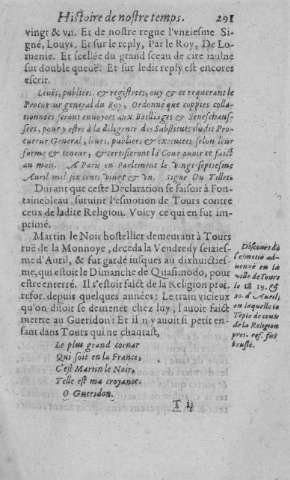 Histoire de nostre temps. 291
vingt & vn. Et de nostre regne l'vnziesme Si-
gné, Louys. Et sur le reply, Par le Roy, De Lo-
menie. Et scellée du grand sceau de cire iaulne
sur double queuë. Et sur ledit reply est encores
escrit.
Leuës, publiées, & registrees, ouy & ce requerant le
Procureur general du Roy, Ordonné que coppies colla-
tionnées seront enuoyees aux Bailliages & Seneschaus-
sées, pour y estre à la diligence des Substituts dudit Pro-
cureur General, leuës, publiées & executées selon leur
forme & teneur, & certifieront la Cour auoir ce faict
au mois. A Paris en Parlement le vingt-septiesme
Auril mil six cens vingt & vn. Signé Du Tillet.
Durant que ceste Declaration se faisoit à Fon-
tainebleau, suruint l'esmotion de Tours contre
ceux de ladite Religion. Voicy ce qui en fut im-
primé.
Martin le Noir hostellier demeurant à Tours
ruë de la Monnoye, deceda la Vendredy seizies-
me d'Auril, & fut gardé iusques au dixhuicties-
me, qui estoit le Dimanche de Quasimodo, pour
estre enterré. Il s'estoit faict de la Religion pret.
refor. depuis quelques années: Le train vicieux
qu'on disoit se demener chez luy, l'auoit faict
mettre au Gueridon: Et il n'y auoit si petit en-
fant dans Tours qui ne chantast,
Le plus grand cornar
Qui soit en la France,
C'est Martin le Noir,
Telle est ma croyance.
O Gueridon.
T ij
Discours de
l'esmotió ad-
uenuë en la
ville de Tours
le 18 19. &
20. d'Auril,
en laquelle le
Téple de ceux
de la Religion
pret. ref. fut
bruslé.